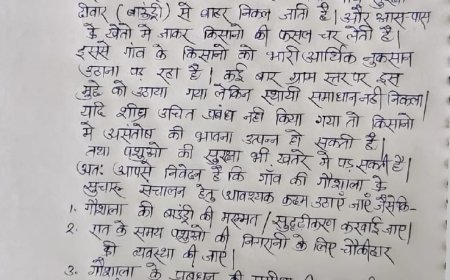 दीवार (बाउंड्री) से बाहर निकल जाती है। और आस-पास
के खेतो में जाकर किसानो की फसल चर लेती है।
इससे गांव के किसानों को भारी आर्थिक नुकसान
उठाना पड़ रहा है। कई बार ग्राम स्तर पर इस
मुद्दे को उठाया गया लेकिन स्थायी समाधान नही निकला।
यदि शीघ्र उचित प्रबंध नहीं किया गया तो किसानो
में असंतोष की भावना उत्पन्न हो सकती है।
तथा पशुओ की सुरक्षा भी खतरे में पड़ सकता है।
अतः आपसे निवेदन है कि गाँव की गौशाला के
सुचारू संचालन हेतु आवश्यक कदम उठाएँ जाएँ जैसे कि-
1. गौशाला की बाउंड्री की मरम्मत / सुदृढीकरण करवाई जाए।
2. रात के समय पशुओ की निगरानी के लिए चौकीदार
की व्यवस्था की जाए।
3. गौशाला के प्रबंधन की